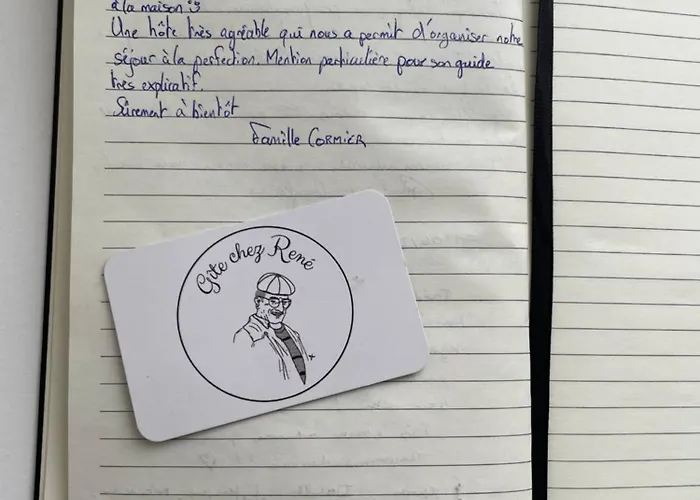 à la maison :)
Une hôte très agréable qui nous a permit d'organiser notre
séjour à la perfection. Mention particulière pour son guide
très explicatif.
Sûrement à bientôt
Famille CORMIER
Gîte chez René